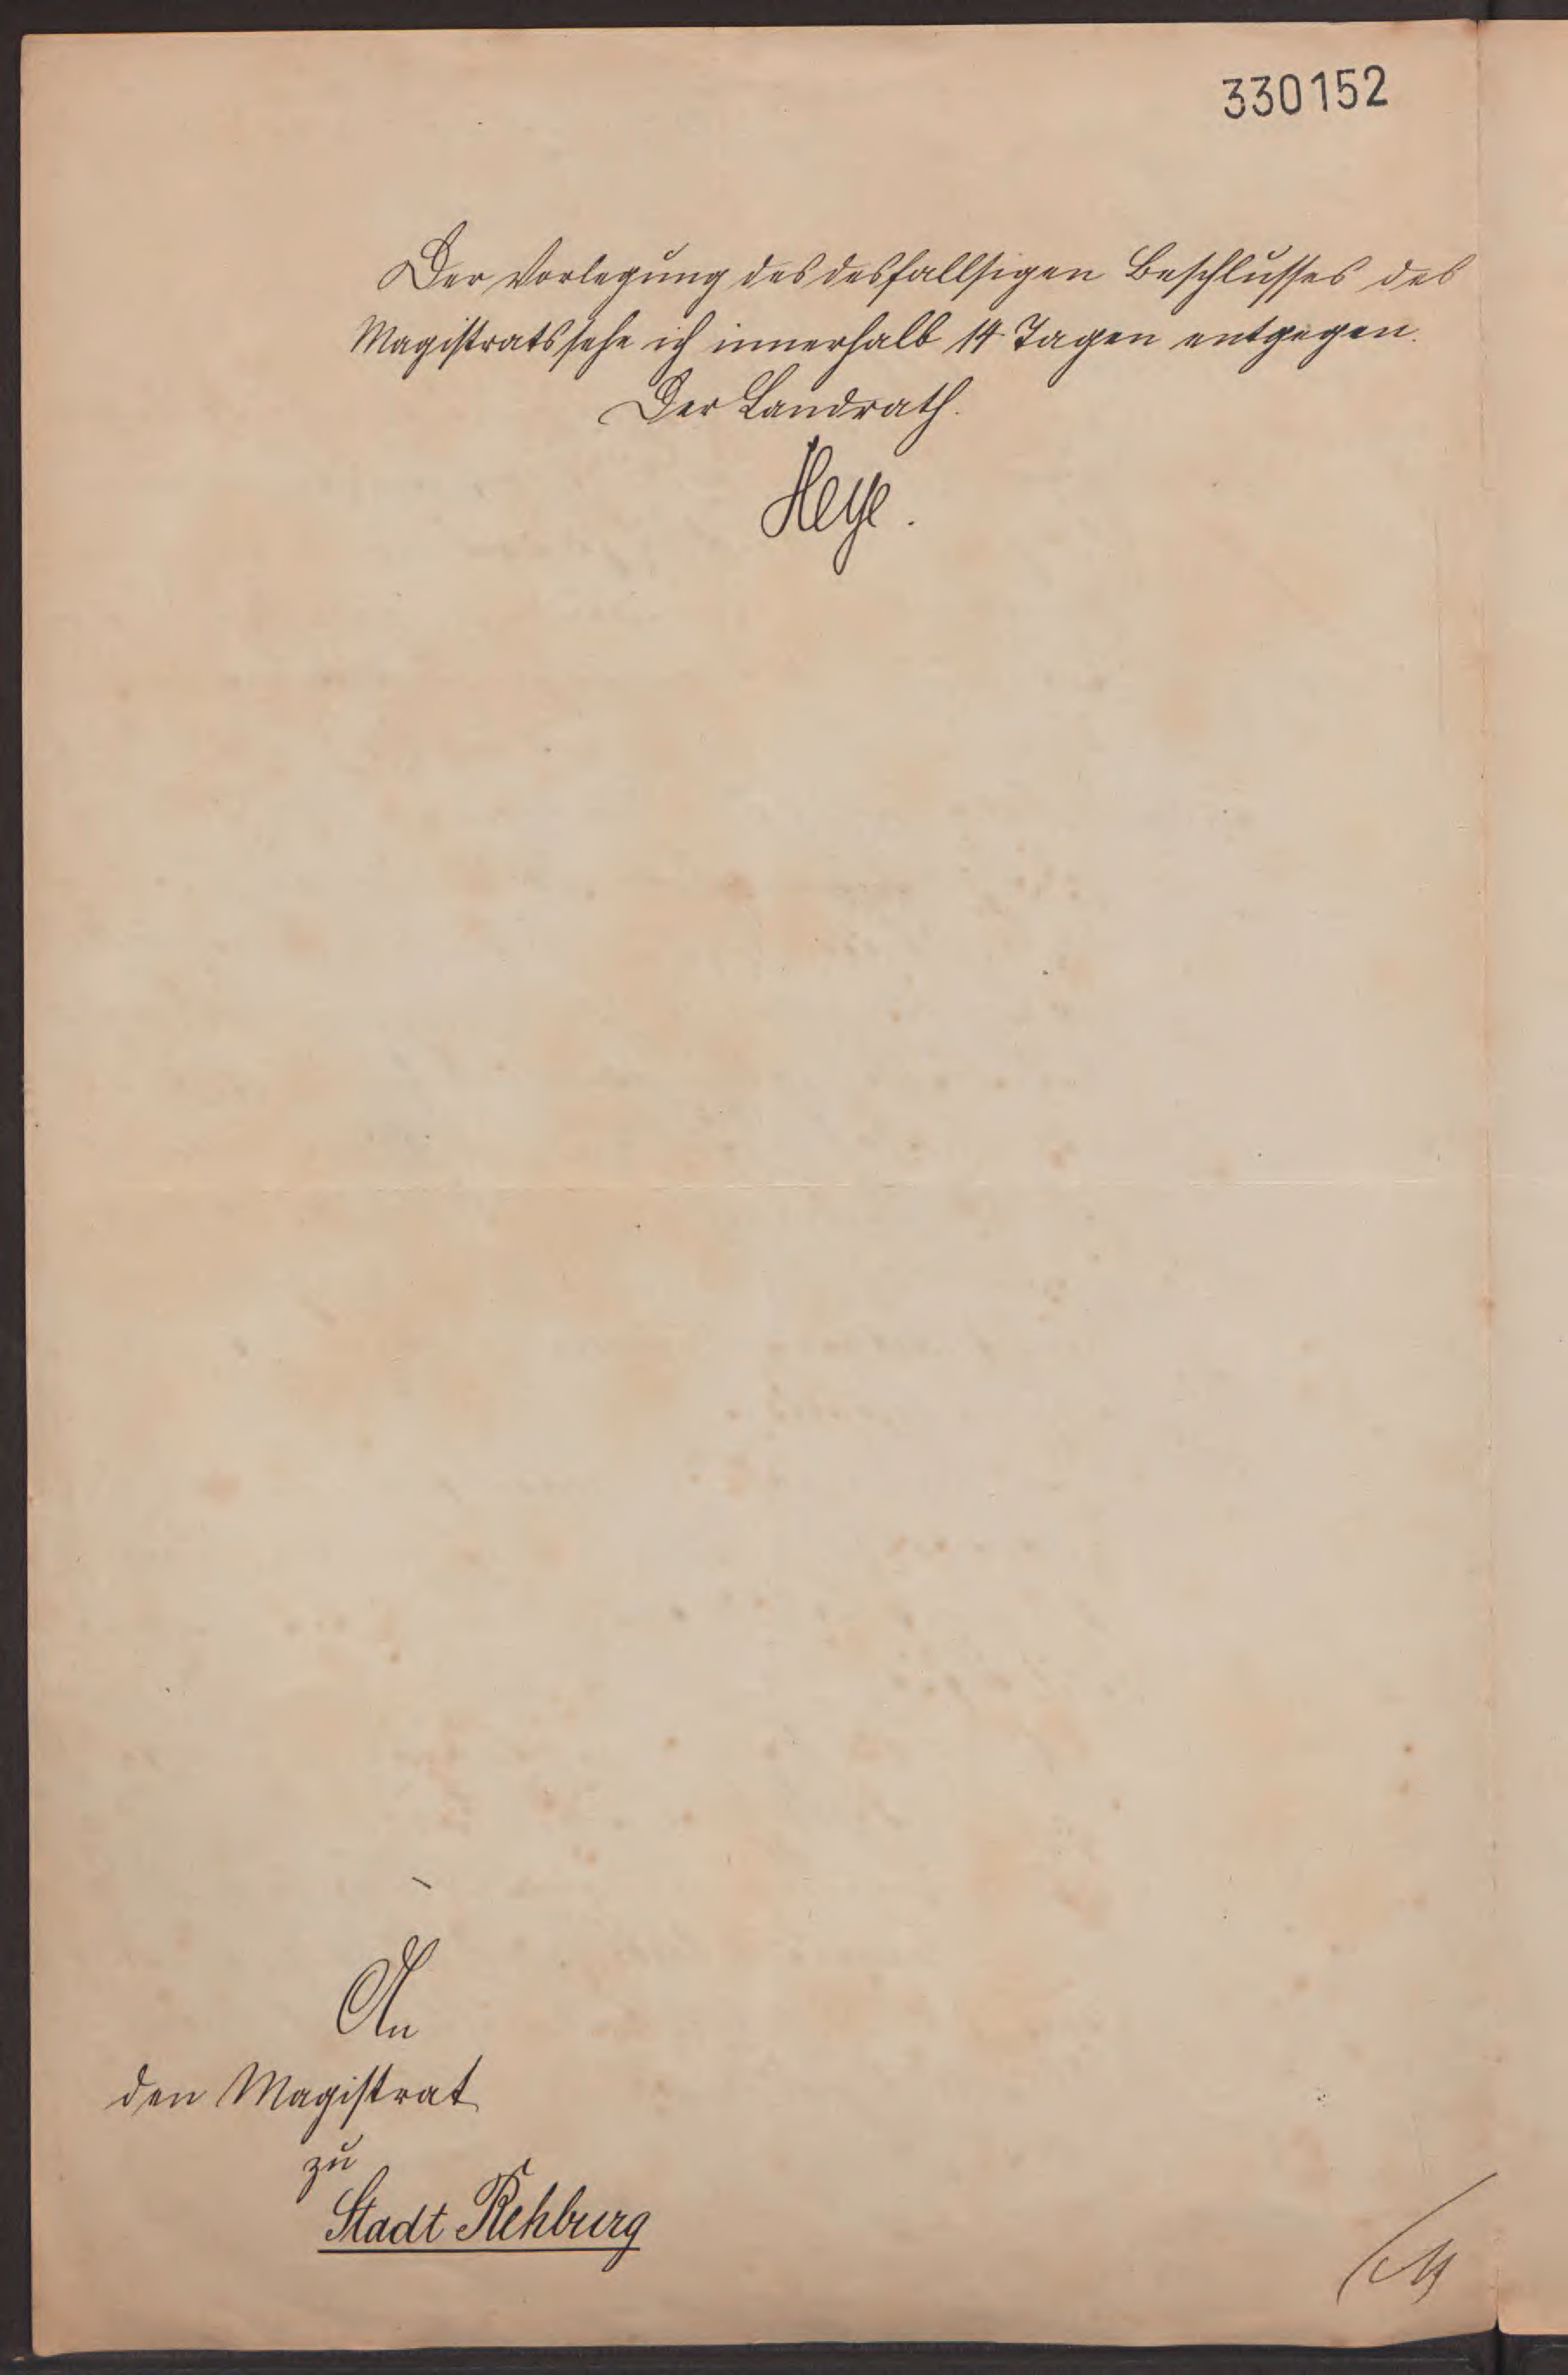 330152
Der Vorlegung des desfallsigen Beschlusses des
Magistrats sehe ich innerhalb 14 Tagen entgegen.
Der Landrath.
Heye.
An
den Magistrat
zu
Stadt Rehburg